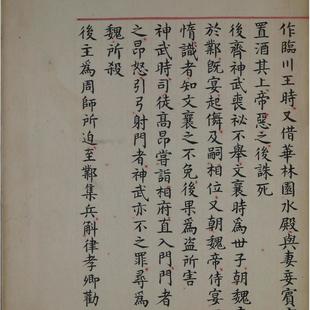 作臨川王時又借華林園水殿與妻妾賓
置酒其上帝惡之後誅死
後齊神武喪祕不舉文襄時為世子朝魏
於鄴既宴起儛及嗣相位又朝魏帝侍宴
惰識者知文襄之不免後果為盜所害
神武時司徒高昂嘗詣相府直入門門者
之昂怒引弓射門者神武亦不之罪尋為
魏所殺
後主為周師所迫至鄴集兵斛律孝卿勸